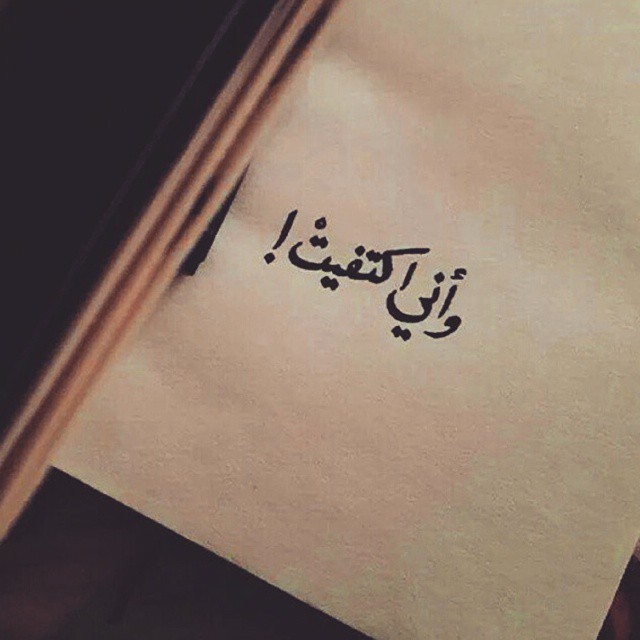 وأني اكتفيتْ !